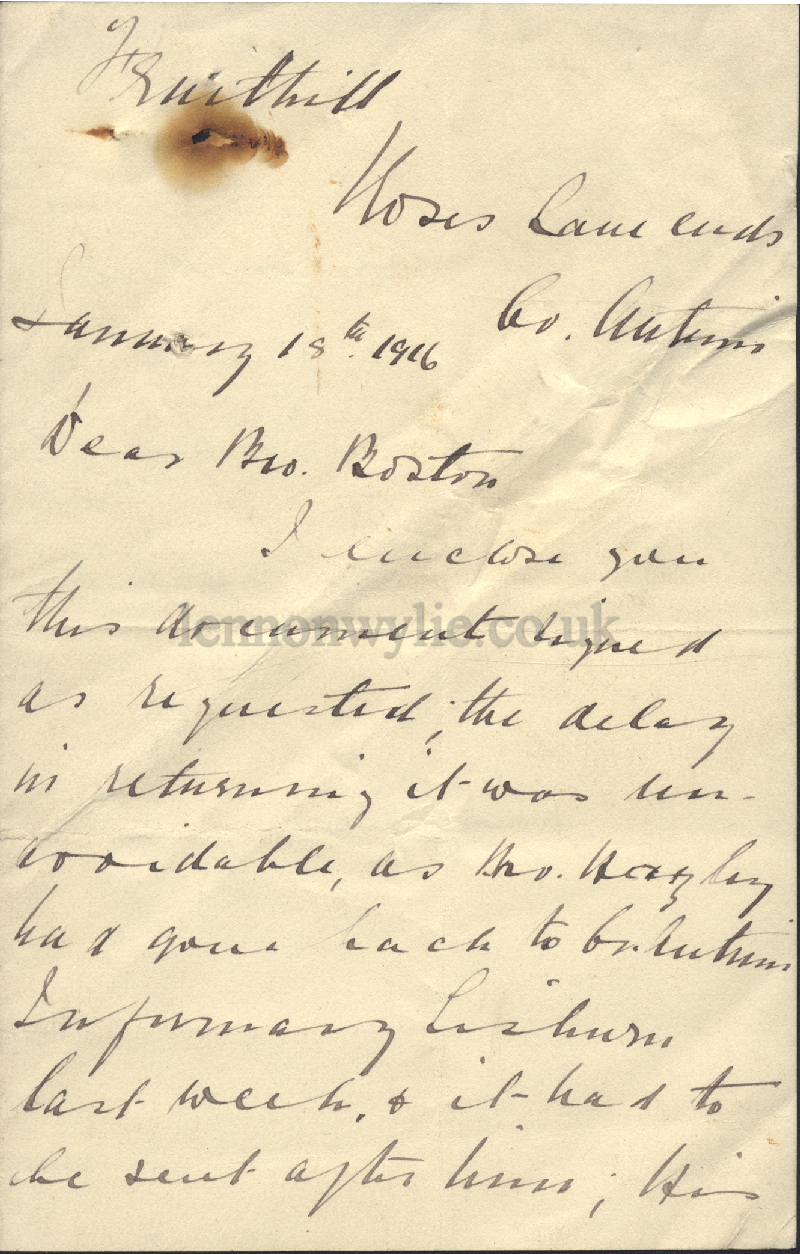 Fruithill
Roses Lane ends
Co. Antrim
January 18th. 1916
Dear Bro. Boston
I enclose you
this document signed
as requested; the delay
in returning it was un-
avoidable, as Bro.
had gone back to Co. Antrim
Infirmary Lisburn
last week, & it had to
be sent after him; His
lennonwylie.co.uk